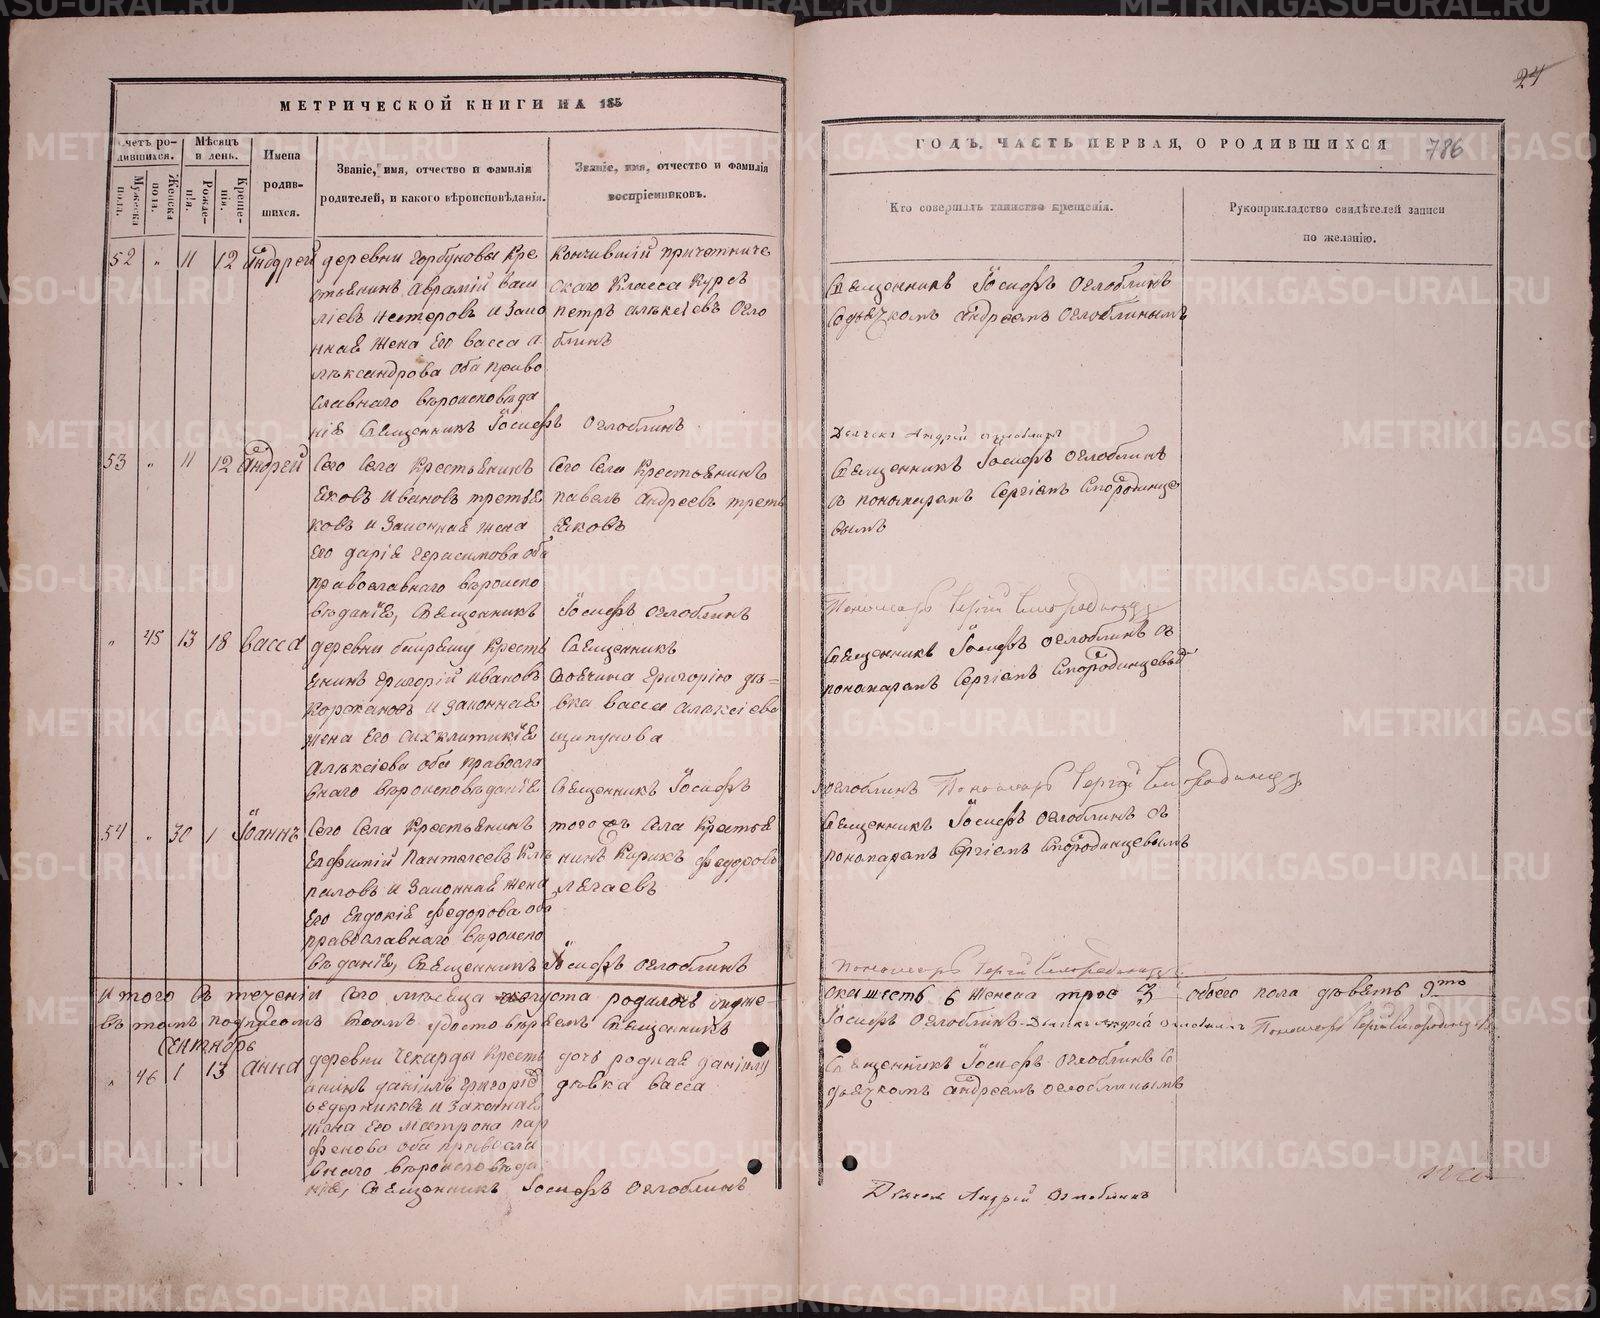 24
МЕТРИЧЕСКОЙ КНИГИ НА 185
ГОДЪ, ЧАСТЬ ПЕРВАЯ, О РОДИВШИХСЯ
786
Счетъ родившихся.
Мѣсяцъ и день.
Имена родившихся.
Званіе, имя, отчество и фамилія
родителей, и какого вѣроисповѣданія.
Званіе, имя, отчество и фамилія
воспріемниковъ.
Мужеска пола.
Женска пола.
Рожденія.
Крещенія.
Кто совершалъ таинство крещенія.
Рукоприкладство свидѣтелей записи
по желанію.
52 " 11 12 Андрей
деревни Горбуновы Кре
стьянинъ Аврамій Васи
ліевъ Нестеровъ и Зако
нная жена Его Васса А
лѣксандрова оба Право
славнаго вѣроисповѣда
нія Священникъ Іосифъ Оглоблинъ
Кончившій причетниче
скаго Класса Курсъ
Петръ Алѣксіевъ Огло
блинъ
Священникъ Іосифъ Оглоблинъ
Содьячкомъ Андреемъ Оглоблинымъ
Дьячекъ Андрей Оглоблинъ
53 " 11 12 Андрей
Сего Села Крестьянинъ
Яковъ Ивановъ Третья
ковъ и Законная жена
Его Дарія Герасимова оба
православнаго вѣроиспо
вѣданія, Священникъ Іосифъ Оглоблинъ
Сего Села Крестьянинъ
Павелъ Андреевъ Треть
яковъ
Священникъ Іосифъ Оглоблинъ
съ пономаремъ Сергіемъ Смородинце
вымъ
Пономарь Сергій Смородинцевъ
" 45 13 18 Васса
деревни Кресть
янинъ Григорій Ивановъ
и законная
жена Его
Алѣксіева оба правосла
внаго вѣроисповѣданія
Священникъ
Григорію дѣ=
вка Васса Алѣксіева
Щипунова
Священникъ Іосифъ
Священникъ Іосифъ Оглоблинъ съ
пономаремъ Сергіемъ Смородинцевымъ
Оглоблинъ Пономарь Сергій Смородинцевъ
54 " 30 1 Іоаннъ
Сего Села Крестьянинъ
Евфимій Пантелеевъ
и Законная жена
Его Евдокія Федорова оба
православнаго вѣроиспо
вѣданія, Священникъ Іосифъ Оглоблинъ
того жъ Села Крестья
нинъ Кирикъ Федоровъ
Легаевъ
Священникъ Іосифъ Оглоблинъ съ
пономаремъ Сергіемъ Смородинцевымъ
Пономарь Сергій Смородинцевъ
Итого въ теченіи Сего мѣсяца Августа родилось муже-
ска шесть 6 женска трое 3 обоего пола дѣвять 9ть
Въ томъ подписомъ Своимъ удостовѣряемъ Священникъ
Іосифъ Оглоблинъ Дьячекъ Андрей Оглоблинъ Пономарь Сергій Смородинцевъ
Сентябрь
" 46 1 13 Анна
деревни Чекарды Кресть
янинъ Даніилъ Григорі
и Законная
жена Его Матрона Пар
фенова оба правосла
внаго вѣроисповѣда
нія, Священникъ Іосифъ Оглоблинъ
дочь родная Даніилу
дѣвка Васса
Священникъ Іосифъ Оглоблинъ съ
дьячкомъ Андреемъ Оглоблинымъ
Дьячекъ Андрей Оглоблинъ
METRIKI.GASO-URAL.RU